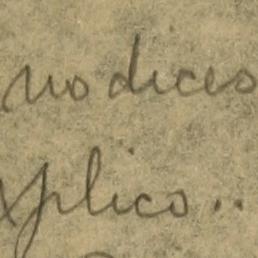 no dices
xplico..